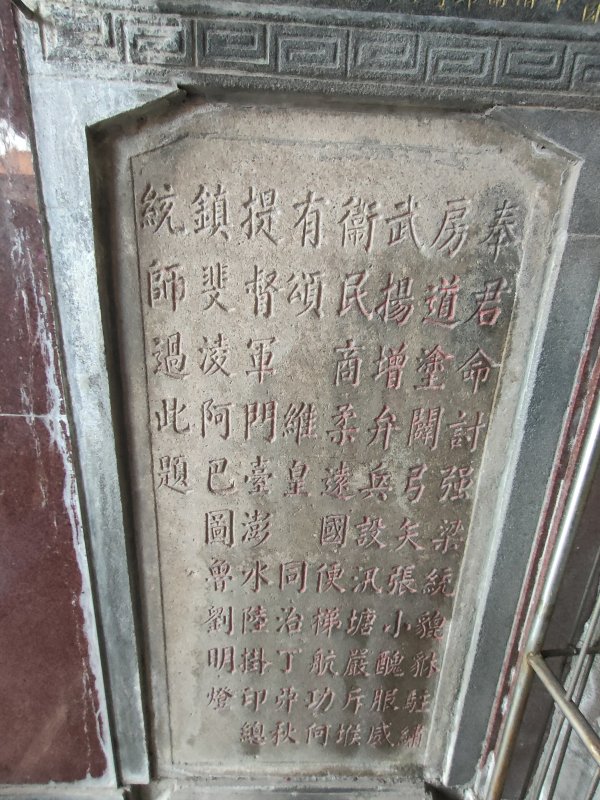 奉君命討强梁統貔貅駐繡
房道塗闢弓矢張小醜服威
武揚增弁兵設汛塘嚴斥堠
衞民商柔遠國便梯航功何
有頌 維皇 同治丁卯秋
提督軍門臺澎水陸掛印總
鎮斐淩阿巴圖魯劉明燈
統師過此題